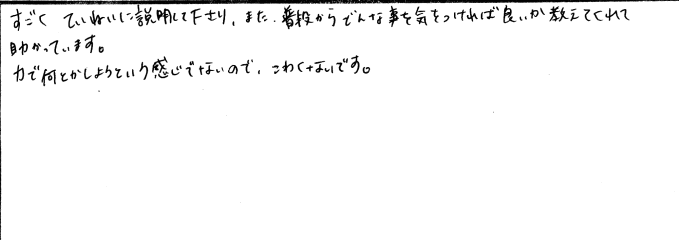 すごく ていねいに説明して下さり、また、普段からどんな事を気をつければ良いか教えてくれて
助かっています。
力で何とかしようという感じでないので、こわくないです。